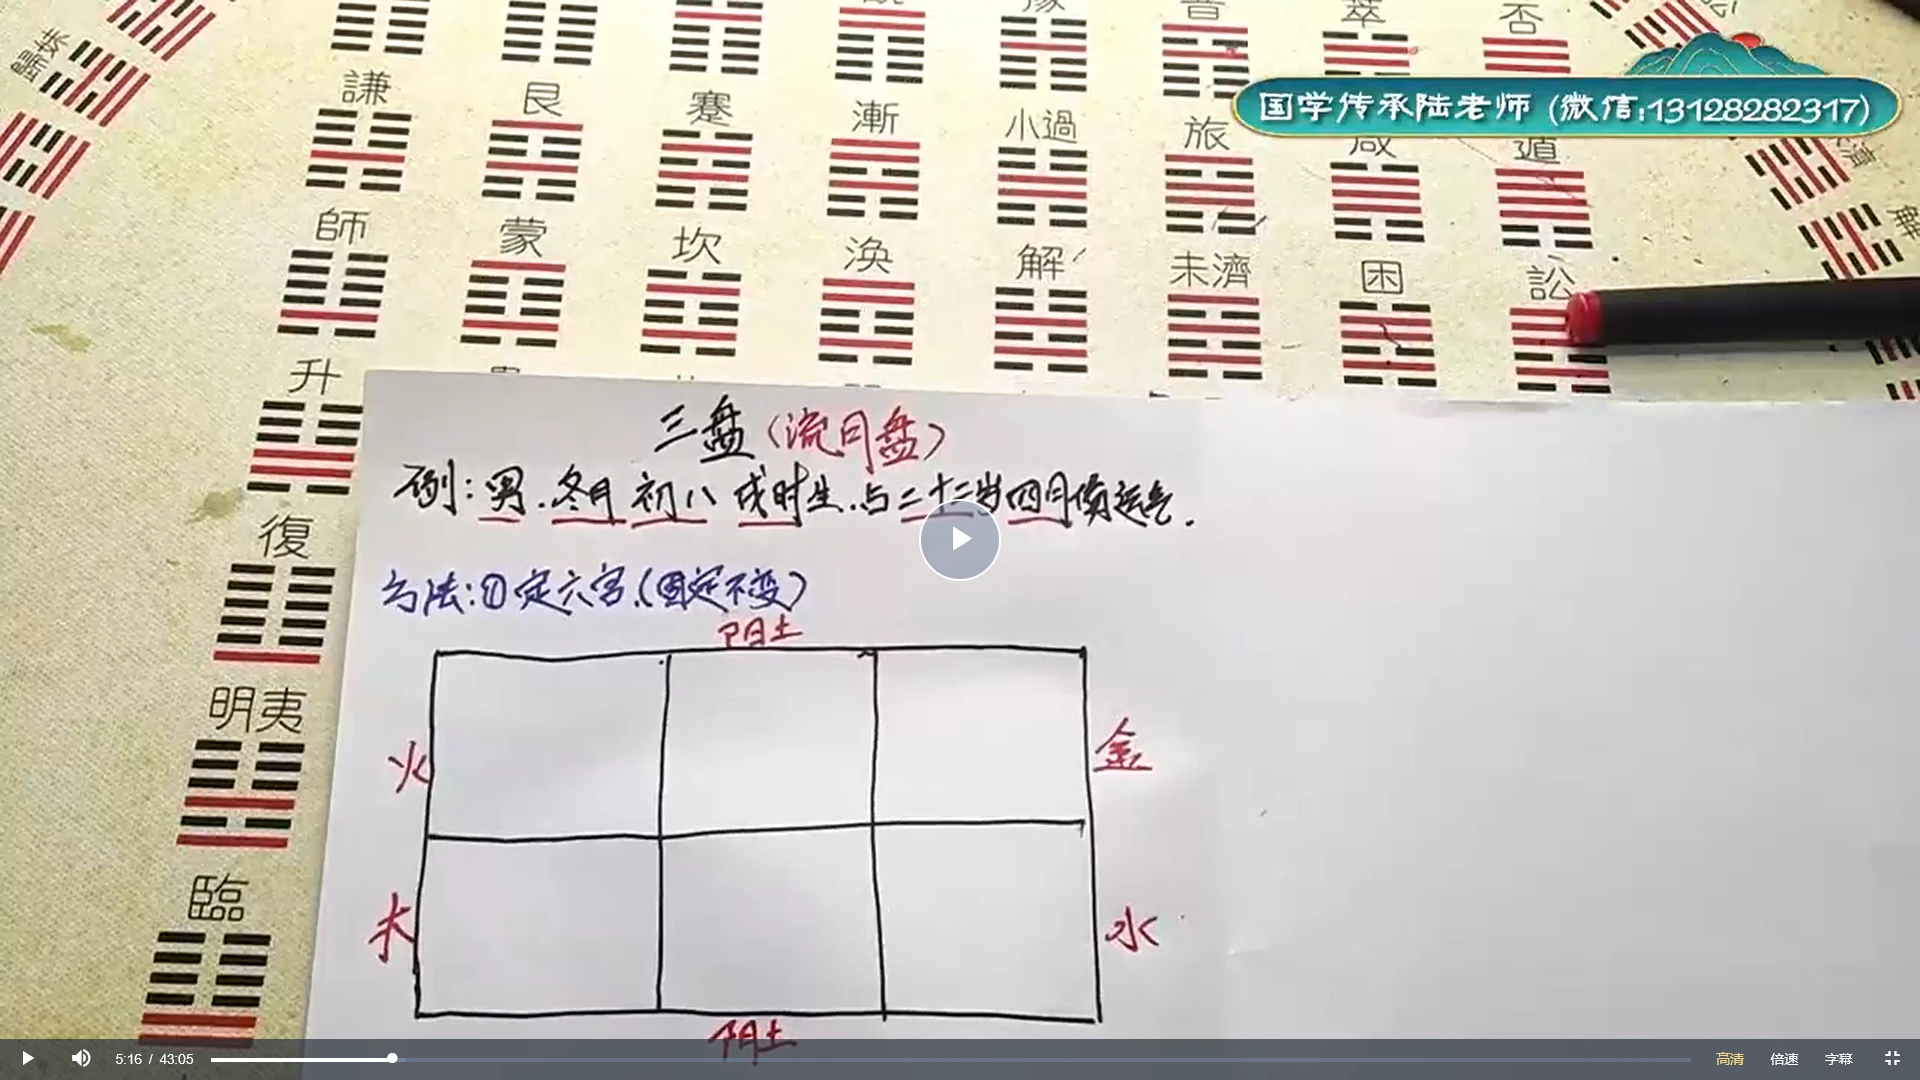 豫
晋
萃
否
歸妹
謙
艮
蹇
漸
小過
旅
咸
遁
国学传承陆老师 (微信:13128282317)
師
蒙
坎
渙
解
未濟
困
訟
解
升
復
明夷
臨
三盘(流月盘)
例:男.冬月初八戌时生.占二十二岁四月份运气.
方法:①定六宫.(固定不变)
阳土
火
金
木
水
阴土
5:16 / 43:05
高清 倍速 字幕